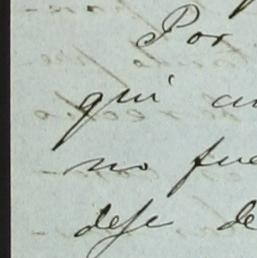 Por
qui
no fue
dese de